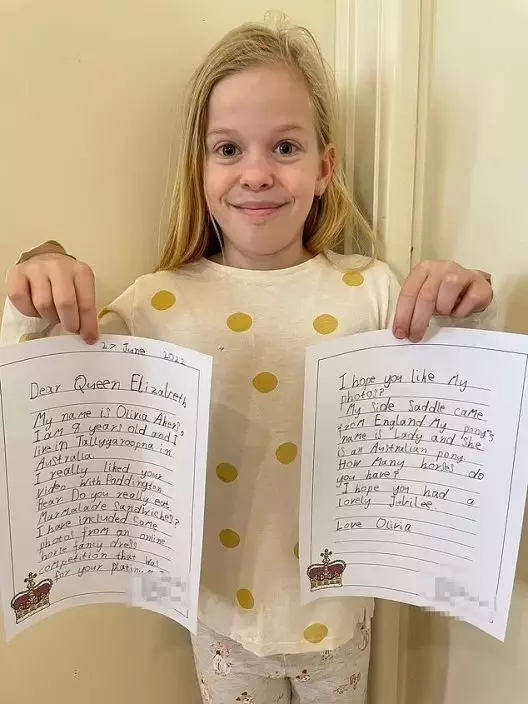 27 June 2022
Dear Queen Elizabeth
My name is Olivia Akers,
I am 8 years old and I
live in Tallygaroopna in
Australia
I really liked your
video with Paddington
Bear. Do you really eat
Marmalade Sandwiches?
I have included come
photos from an online
horse fancy dress
competition that was
for your platinum
I hope you like My
photos?
My side Saddle came
from England My pony's
name is Lady and She
is an Australian pony.
How Many horses do
you have?
I hope you had a
Lovely Jubilee.
Love Olivia